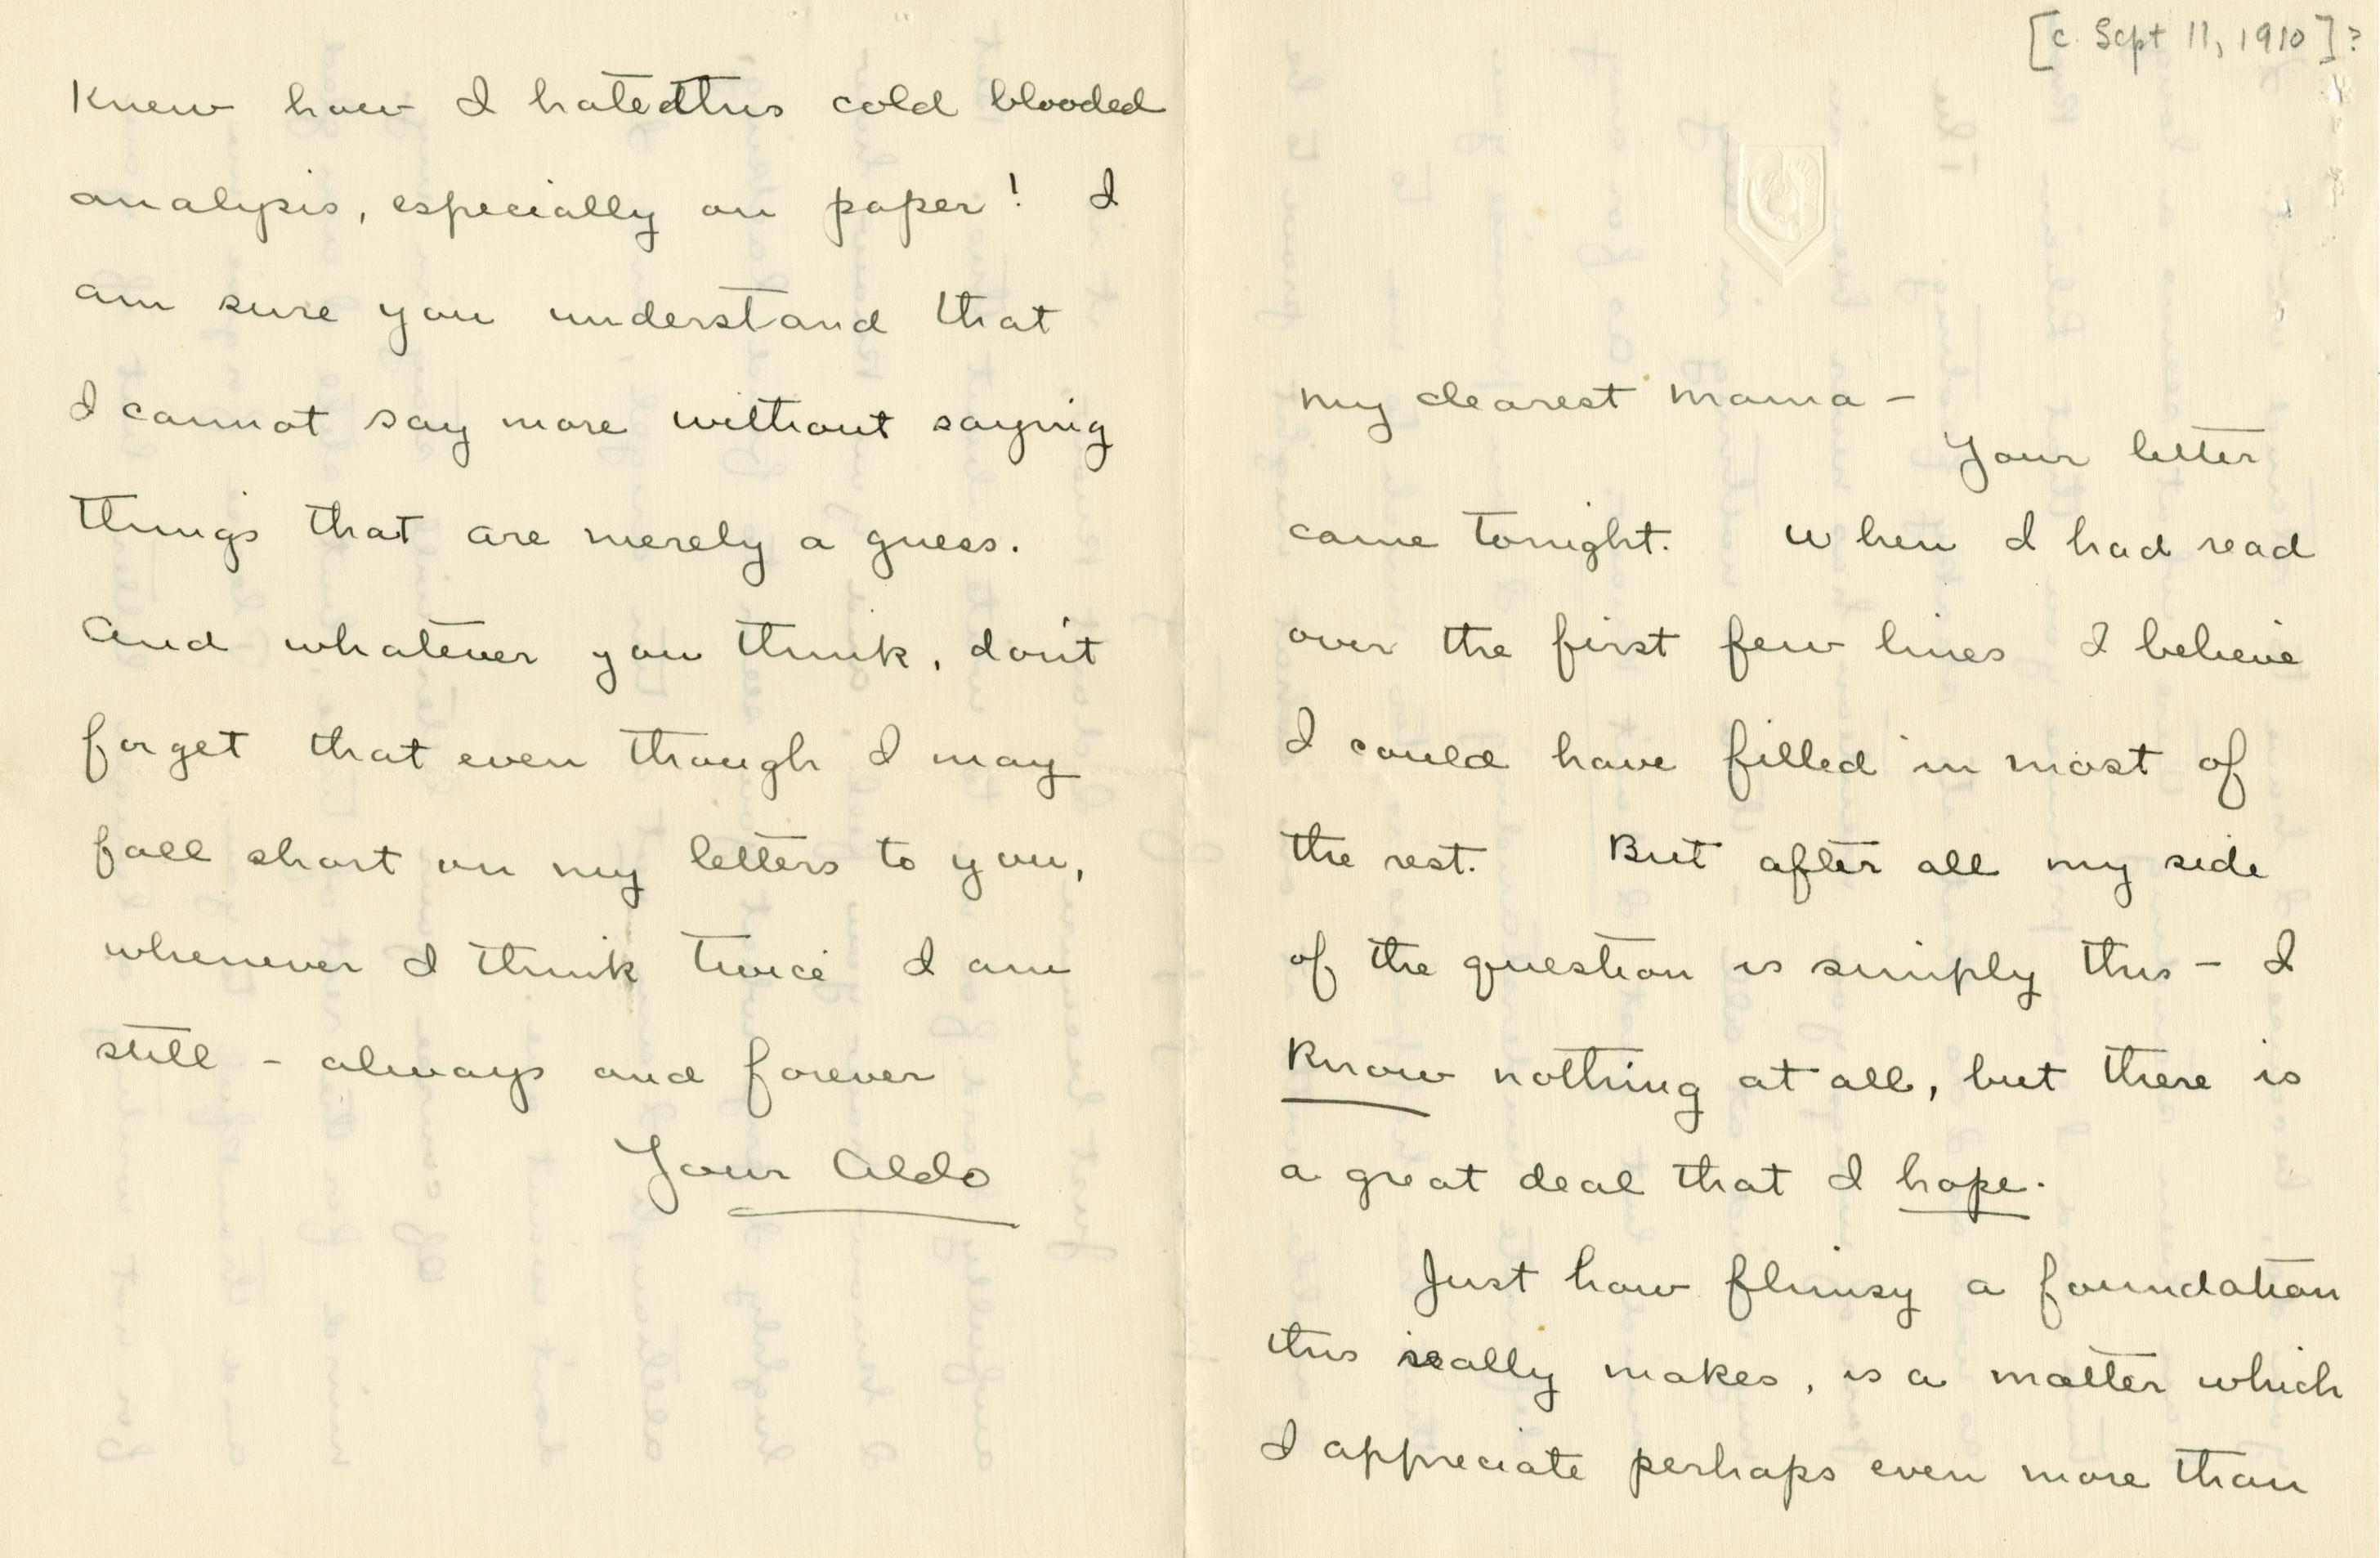 Knew how I hated this cold blooded
analysis, especially on paper! I
am sure you understand that
I cannot say more without saying
things that are merely a guess.
And whatever you think, don't
forget that even though I may
fall short on my letters to you,
whenever I think twice I am
still – always and forever
Your Aldo
[c. Sept 11, 1910]?
My dearest Mama –
Your letter
came tonight. When I had read
over the first few lines I believe
I could have filled in most of
the rest. But after all my side
of the question is simply this – I
Know nothing at all, but there is
a great deal that I hope.
Just how flimsy a foundation
this really makes, is a matter which
I appreciate perhaps even more than